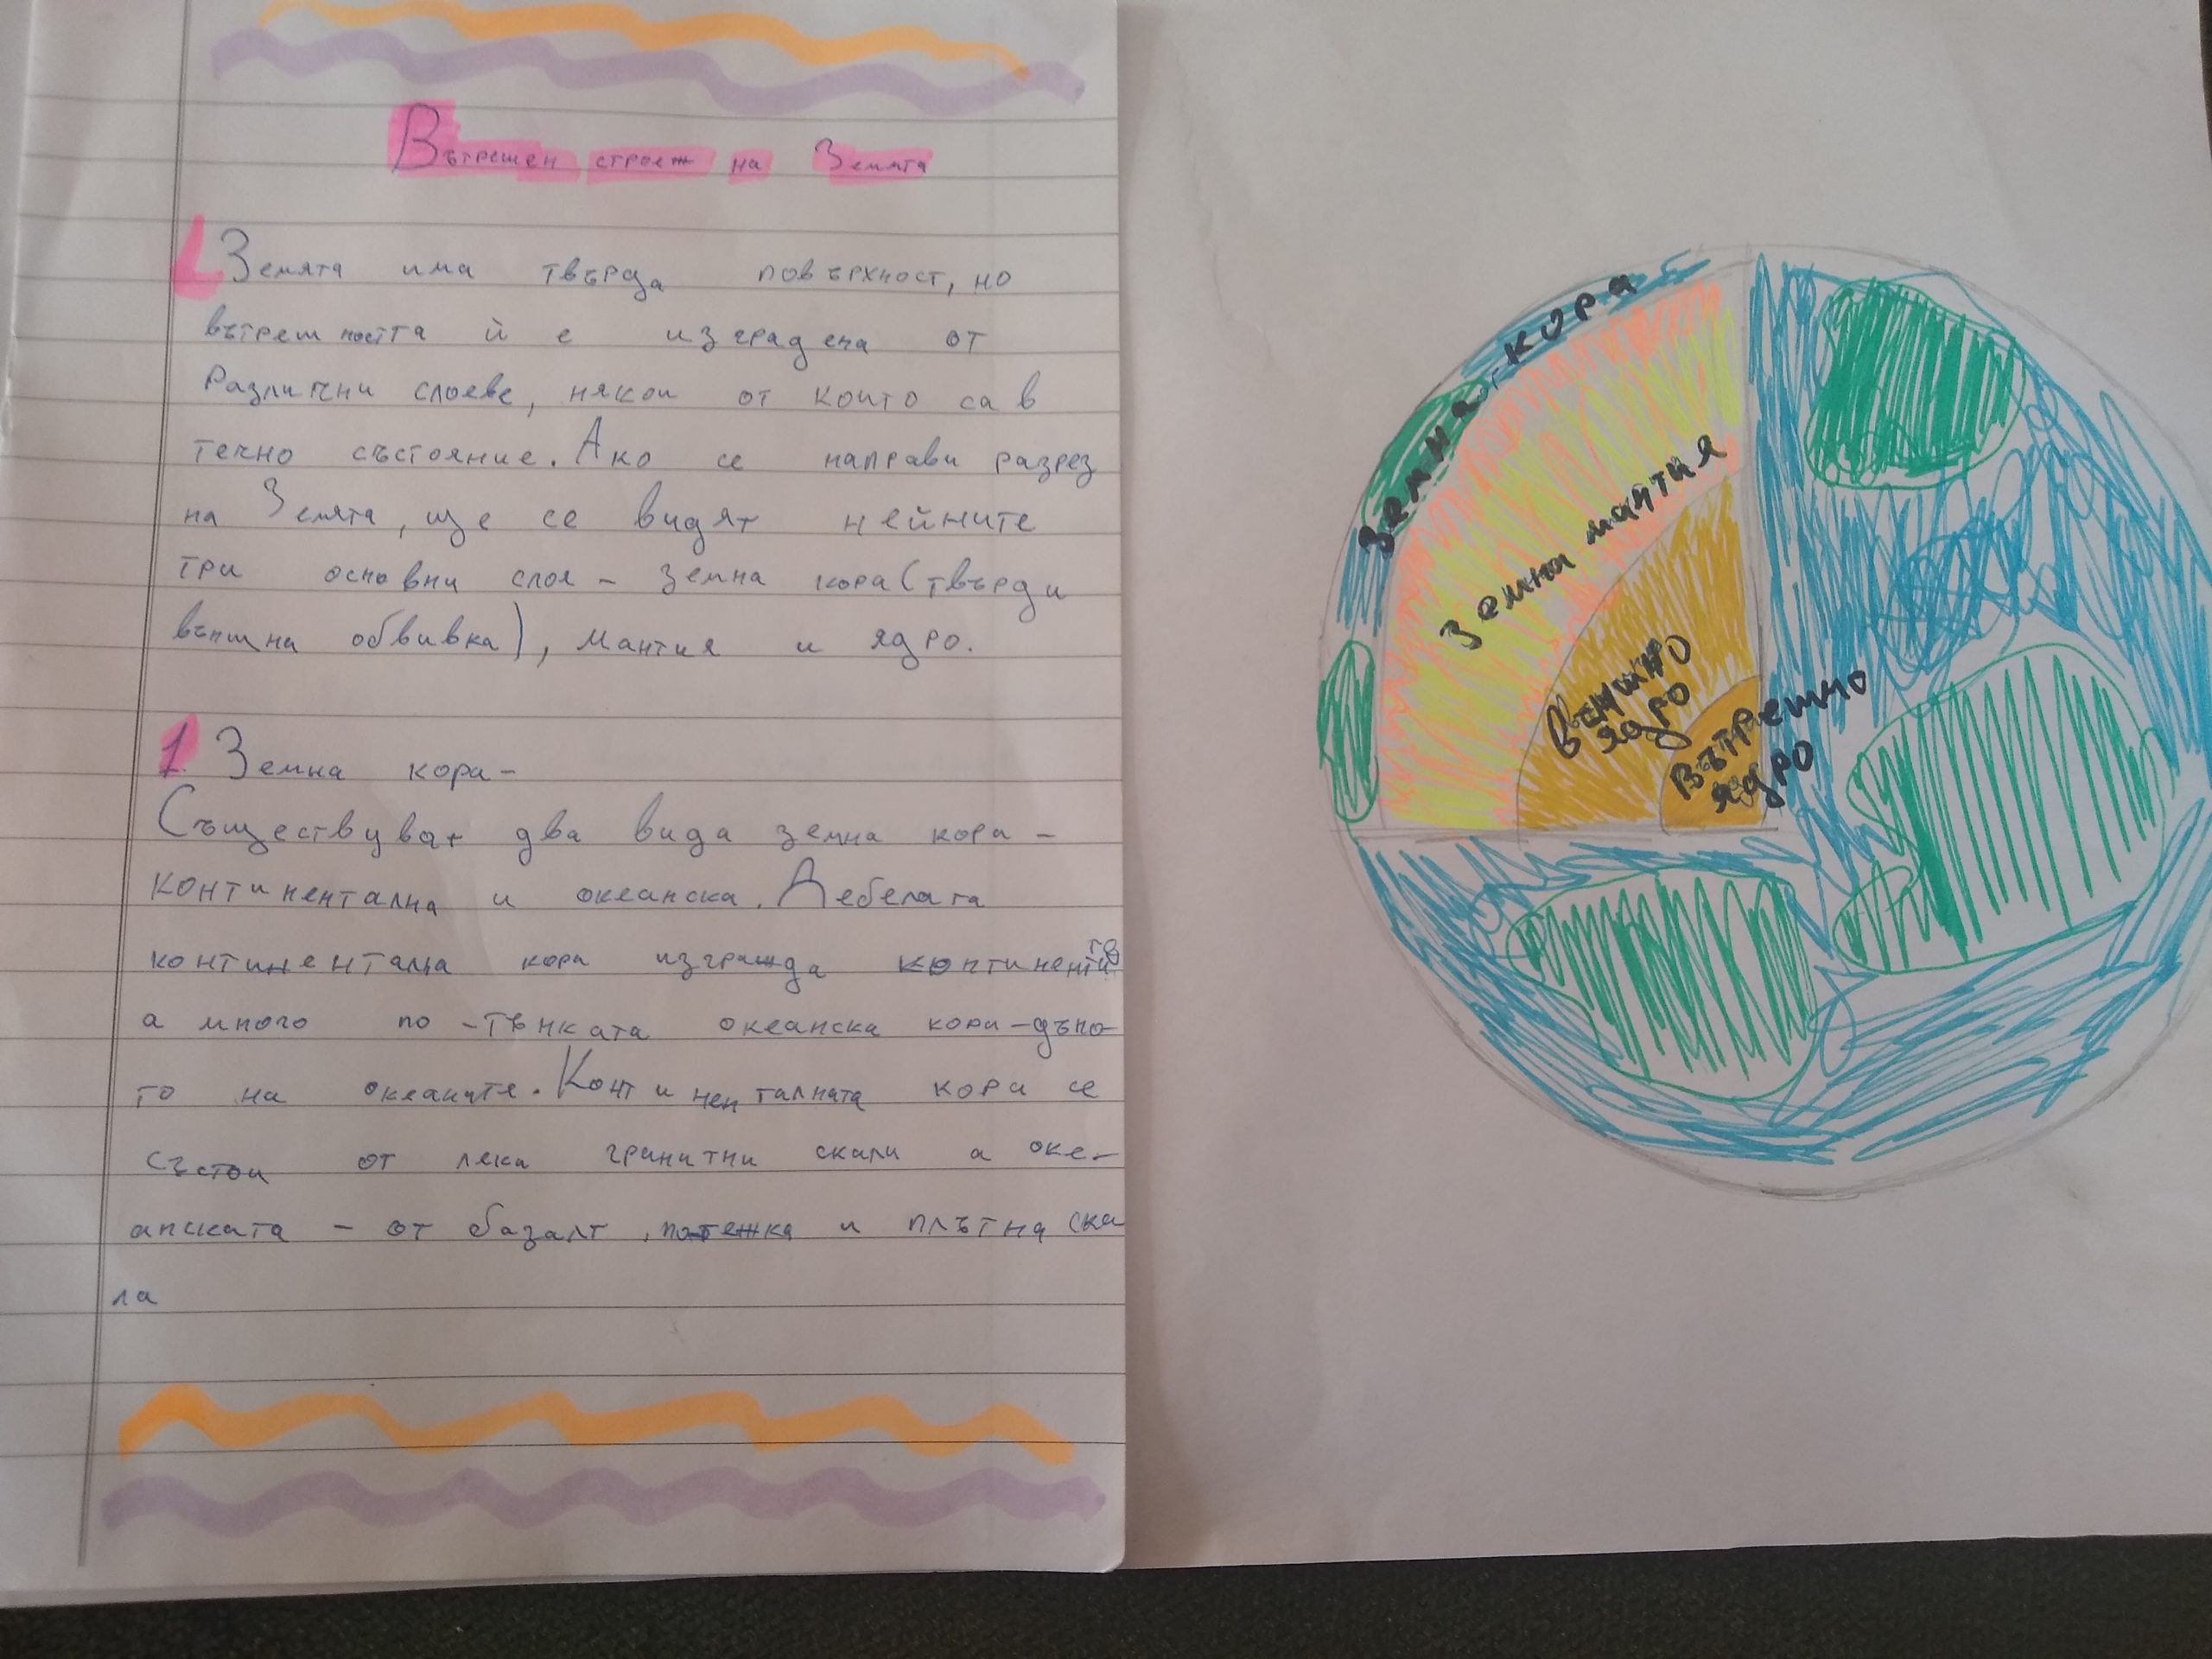 Вътрешен строеж на Земята
Земята има твърда повърхност, но
вътрешността ѝ е изградена от
Различни слоеве, някои от които са в
течно състояние. Ако се направи разрез
на Земята, ще се видят нейните
три основни слоя - земна кора (твърди
външна обвивка), мантия и ядро.
1. Земна кора-
Съществуват два вида земна кора -
континентална и океанска. Дебелата
континентална кора изгражда континентите
а много по-тънката океанска кора-дъно-
то на океаните. Континенталната кора се
състои от леки гранитни скали а оке-
анската - от базалт, по-тежка и плътна ска
ла
Земна кора
Земна мантия
Външно
ядро
Вътрешно
ядро